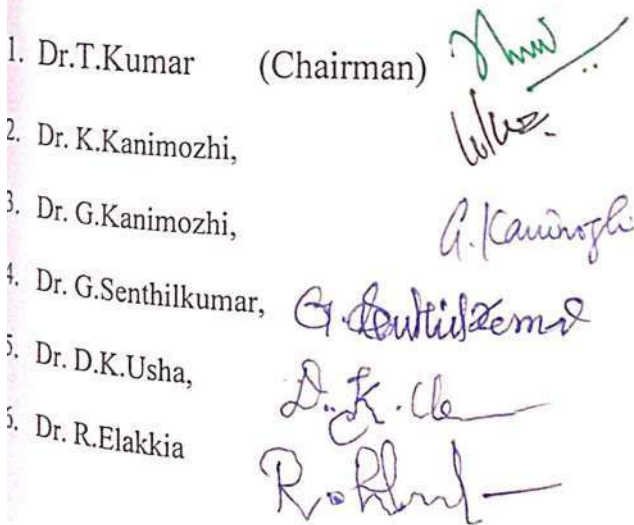 1. Dr.T.Kumar (Chairman)
2. Dr. K.Kanimozhi,
3. Dr. G.Kanimozhi, G.Kanimozhi
4. Dr. G.Senthilkumar, G.Senthilkumar
5. Dr. D.K.Usha, D.K.
6. Dr. R.Elakkia R.